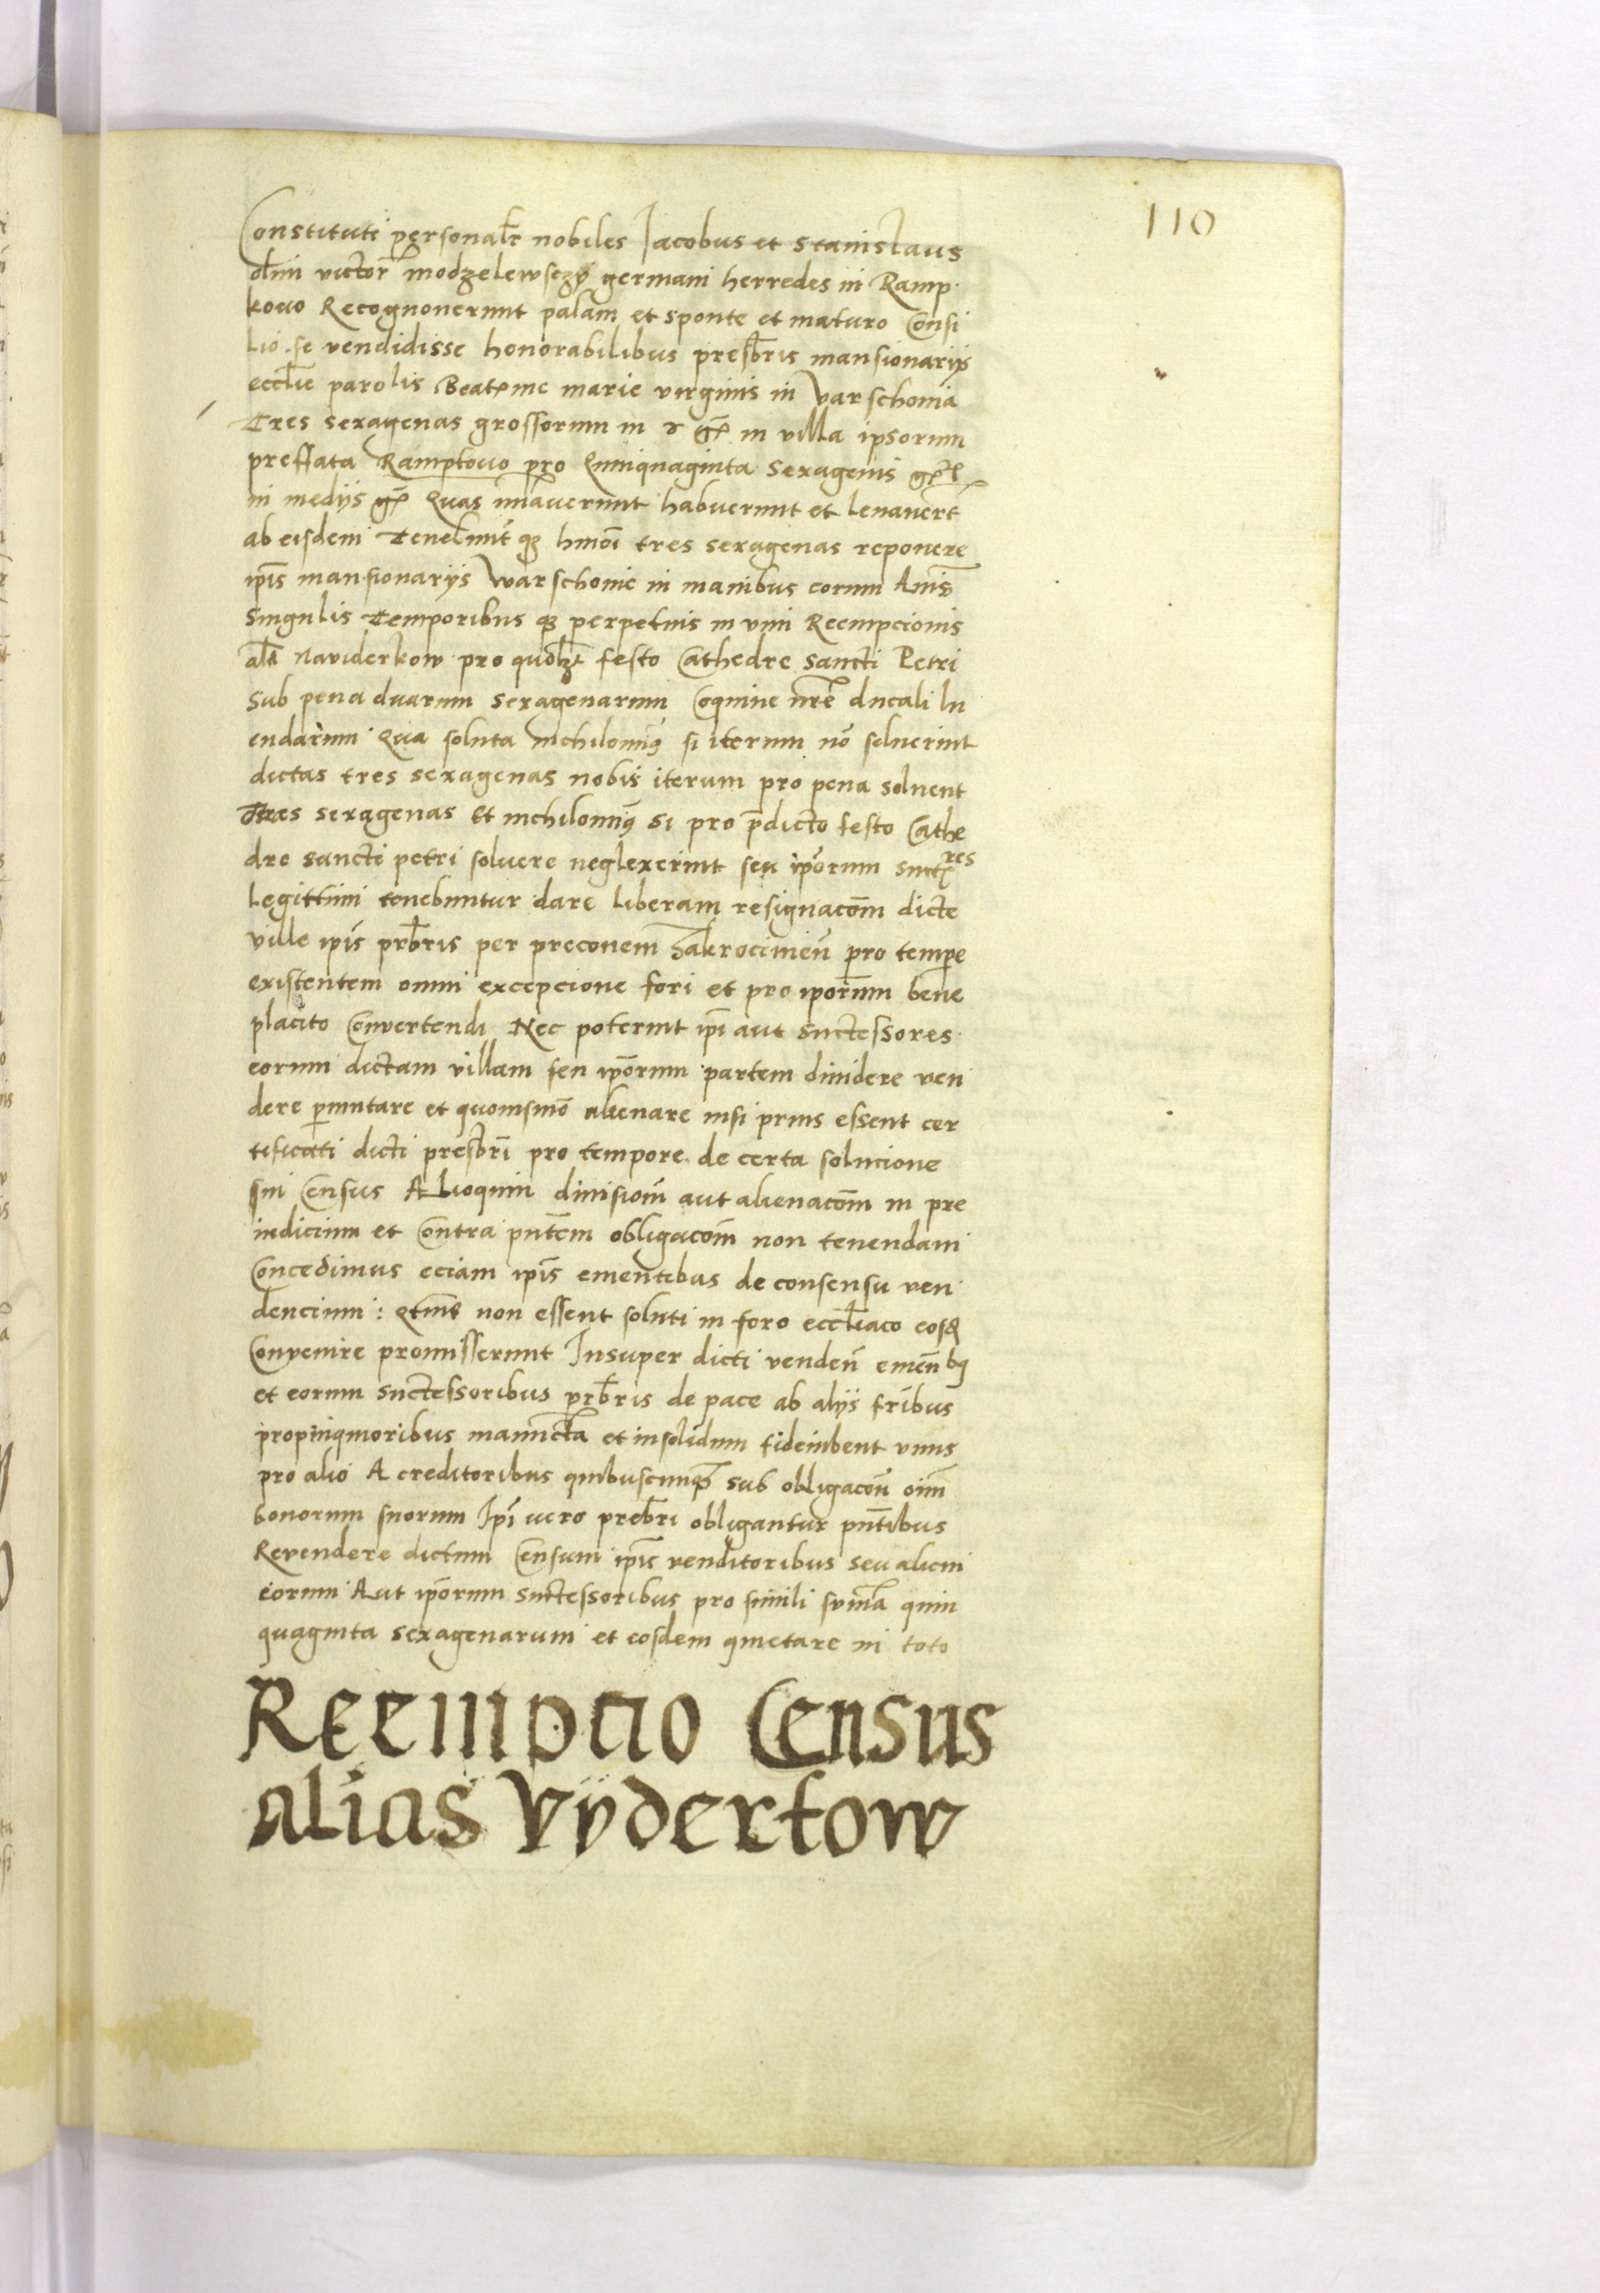 110
Constituti personalr nobiles Jacobus et Stanislaus
olim victor modzelewsczy germani herredes in Ramp
kovo Recognoverunt palam et sponte et maturo Consi
lio se vendidisse honorabilibus presbris mansionarijs
ecclie parolis Beatime marie virginis in Varschovia
Tres sexagenas grossorum in gr in villa ipsorum
preffata Ramptovo pro Quinquaginta sexagenis gr
in medijs gr Quas habuerunt et levavert
ab eisdem que hmoi tres sexagenas reponere
ipis mansionarijs Warschovie in manibus eorum Anis
Singulis Temporibus que perpetuis in vim Reempcionis
als naviderkow pro quolzt festo Cathedre sancti Petri
Sub pena duarum sexagenarum Coquine nre ducali lu
endarum Qua soluta nichilominus si iterum no soluerint
dictas tres sexagenas nobis iterum pro pena soluent
Tres sexagenas Et nichilominus si pro pdicto festo Cathe
dre sancti petri soluere neglexerint seu iporum suctres
Legittimi tenebuntur dare liberam resignacom dicte
ville ipis prbris per preconem Zakrocimien pro tempe
existentem omni excepcione fori et pro iporum bene
placito Convertendi Nec poterint ipi aut suctessores
eorum dictam villam seu iporum partem dividere ven
dere pmutare et quouismo alienare nisi prius essent cer
tificati dicti presbri pro tempore de certa solucione
sui Census Alioquin divisiom aut alienacom in pre
iudicium et Contra pntem obligacom non tenendam
Concedimus eciam ipis ementibus de consensu ven
dencium : Qtens non essent soluti in foro eccliaco eosd
Convenire promisserunt Insuper dicti venden emenbq
et eorum suctessoribus prbris de pace ab alijs fribus
propinquioribus manuicta et insolidum fideiubent vnus
pro alio A creditoribus quibuscumque sub obligacon oim
bonorum suorum Ipi vero prebri obligantur pntibus
Revendere dictum Censum ipis venditoribus seu alicui
eorum Aut iporum suctessoribus pro simili suma quin
quaginta sexagenarum et eosdem quietare in toto
Reemptio Census
alias Vÿdertow